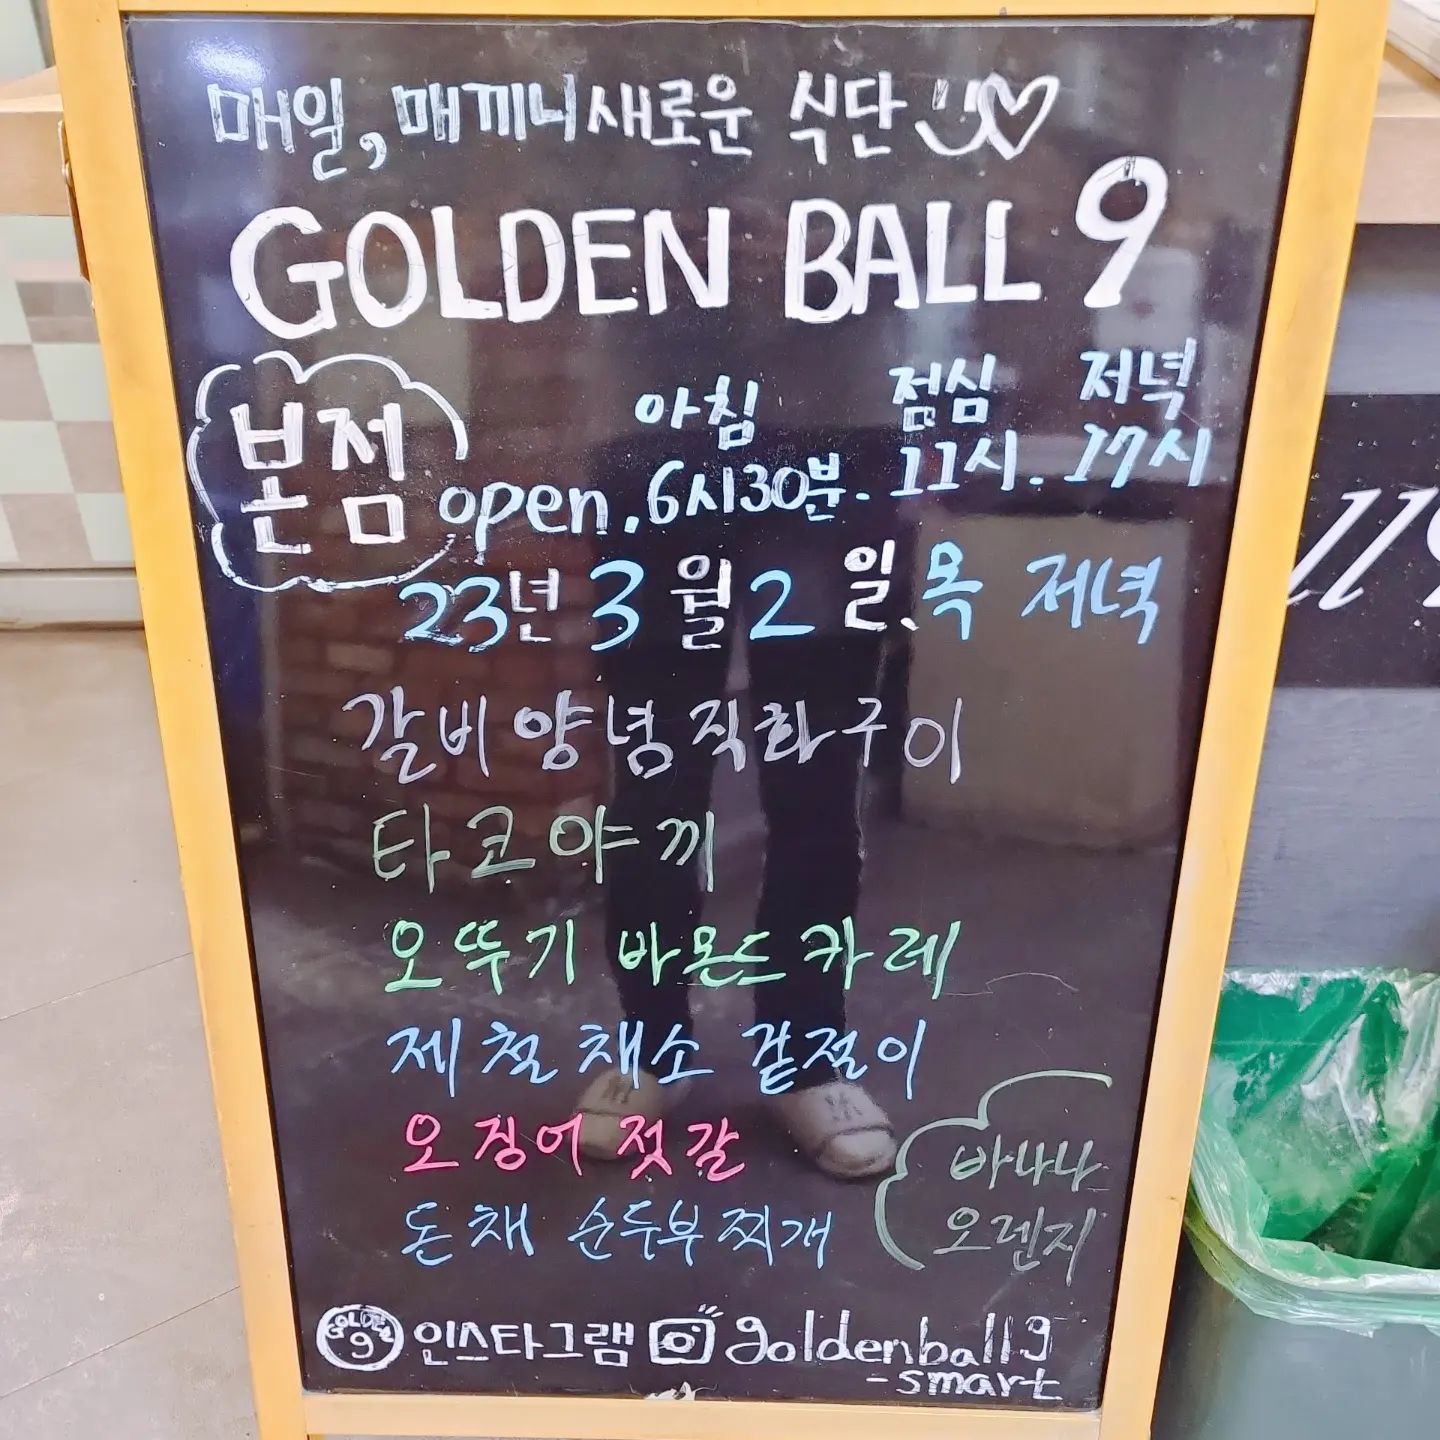 매일, 매끼니 새로운 식단
GOLDEN BALL 9
본점
아침 점심 저녁
open. 6시30분. 11시. 17시
23년 3월 2일. 목 저녁
갈비양념직화구이
타코야끼
오뚜기 바몬드카레
제철채소 겉절이
오징어 젓갈
돈채 순두부찌개
바나나
오렌지
GOLDEN 9 인스타그램 goldenball9
-smart